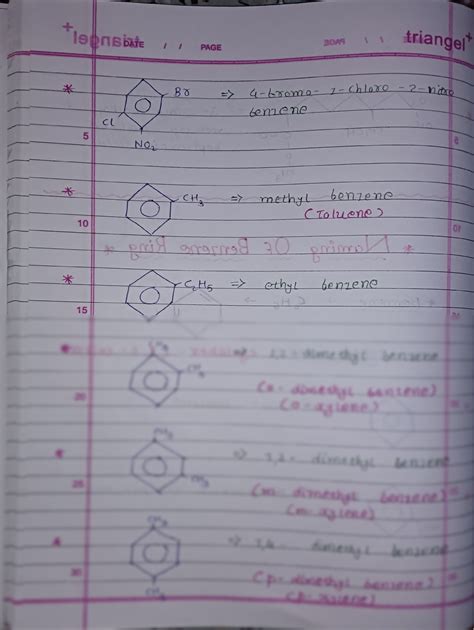 triangel+
DATE / / PAGE
* Br => 4-bromo-1-chloro-2-nitro
benzene
Cl
5
NO2
* CH3 => methyl benzene
10 (Toluene)
* Naming Of Benzene Ring *
* C2H5 => ethyl benzene
15
CH3 => 1,2-dimethyl benzene
CH3
20 (o-dimethyl benzene)
(o-xylene)
CH3 => 1,3-dimethyl benzene
25 CH3 (m-dimethyl benzene)
(m-xylene)
CH3 => 1,4-dimethyl benzene
30 (p-dimethyl benzene)
CH3 (p-xylene)